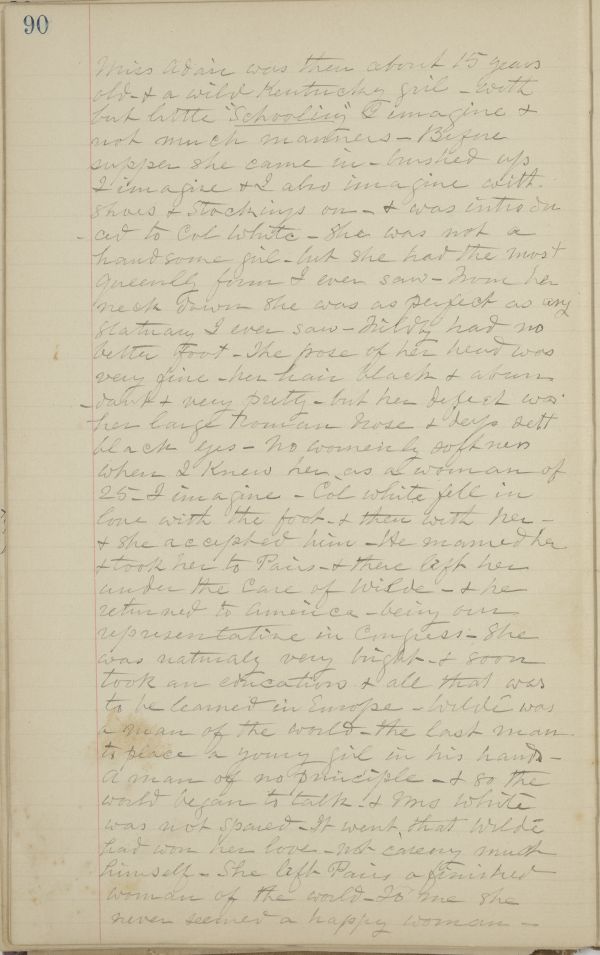 90
Miss Adair was then about 15 years
old & a wild Kentucky girl - with
but little "Schooling" I imagine &
not much manners - Before
supper she came in - brushed up
I imagine & I also imagine with
shoes & stockings on - & was introdu
- ced to Col White - She was not a
handsome girl - but she had the most
queenly form I ever saw - From her
neck down she was as perfect as any
Statuary I ever saw - had no
better Foot - The pose of her head was
very fine - her hair black & abun
- dant & very pretty - but her defect was
her large Roman Nose & deep sett
black eyes - No womenly softness
when I Knew her, as a woman of
25 - I imagine - Col White fell in
love with the foot - & then with her -
& she accepted him - He married her
& took her to Paris - & there left her
under the Care of Wilde - & he
returned to America - being our
representative in Congress - She
was naturaly very bright - & soon
took an education & all that was
to be learned in Europe - Wilde was
a man of the world - the last man
to place a young girl in his hands -
A man of no principle - & so the
world began to talk - & Mrs White
was not spared - It went, that Wilde
had won her love - not careing much
himself - She left Paris a finished
woman of the world - To me she
never seemed a happy woman -